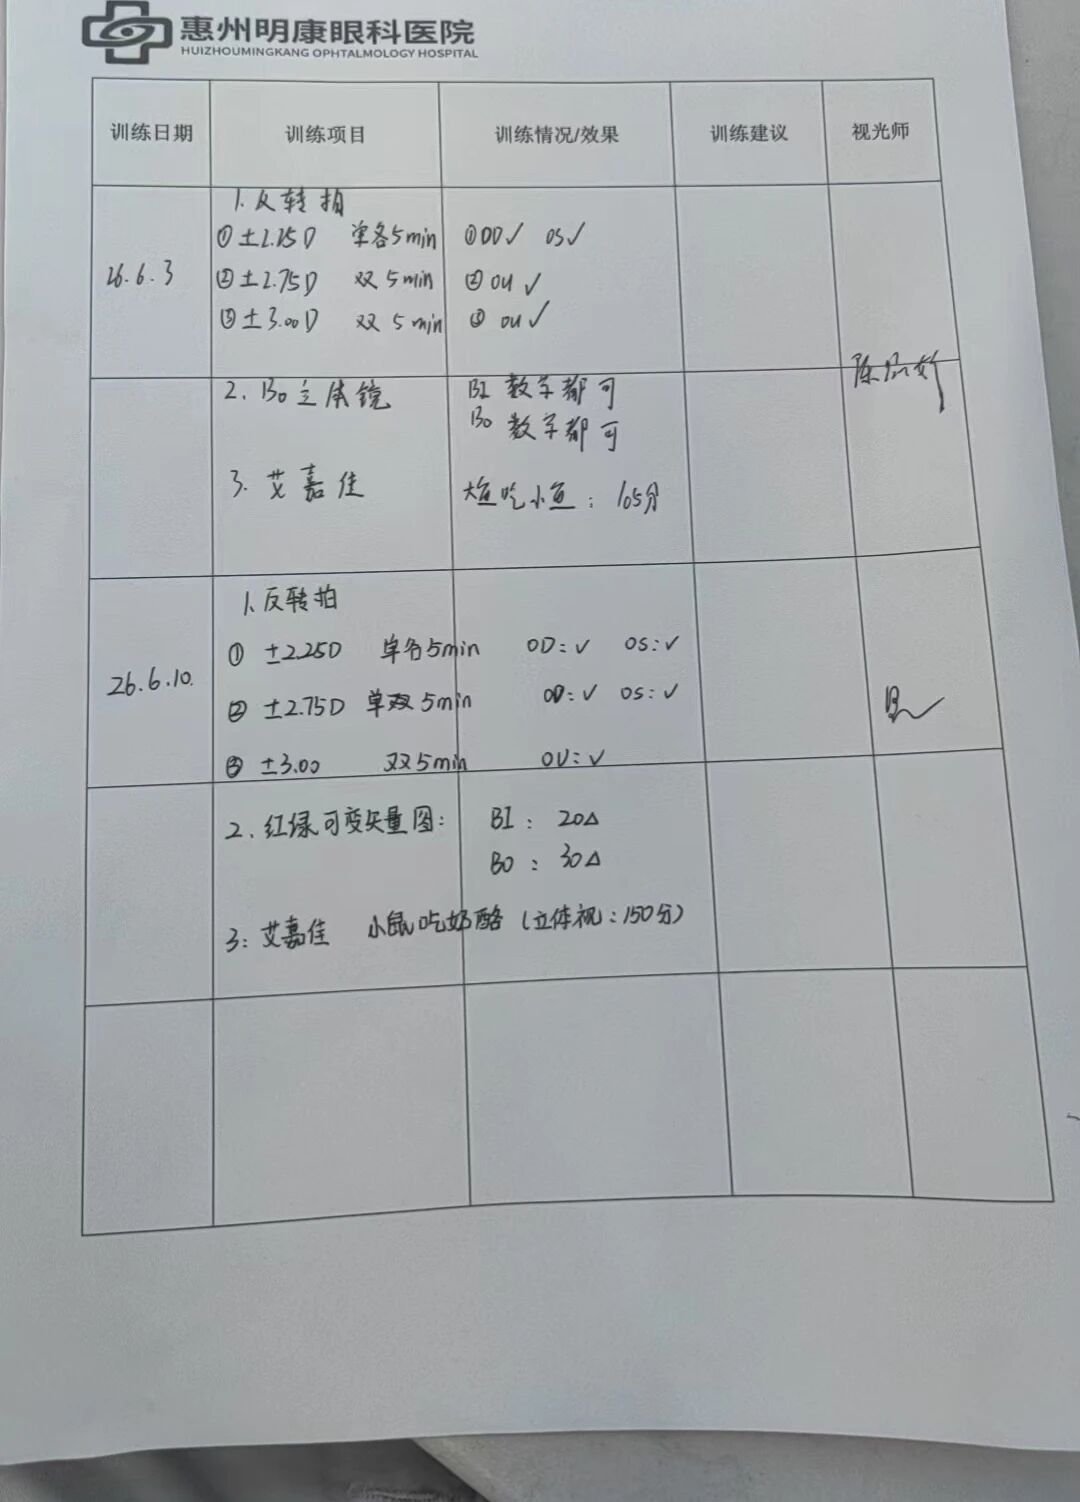 惠州明康眼科医院
HUIZHOUMINGKANG OPHTALMOLOGY HOSPITAL
训练日期 训练项目 训练情况/效果 训练建议 视光师
26.6.3
1. 反转拍
① ±2.25D 单各5min ①OD✓ OS✓
② ±2.75D 双 5min ② OU ✓
③ ±3.00D 双 5min ③ OU ✓
2. BO立体镜 BI 数字都可
BO 数字都可
3. 艾嘉佳 大鱼吃小鱼：105分
26.6.10.
1. 反转拍
① ±2.25D 单各5min OD：✓ OS：✓
② ±2.75D 单双5min OD：✓ OS：✓
③ ±3.00 双5min OU：✓
2. 红绿可变矢量图： BI： 20△
BO： 30△
3：艾嘉佳 小鼠吃奶酪（立体视：150分）